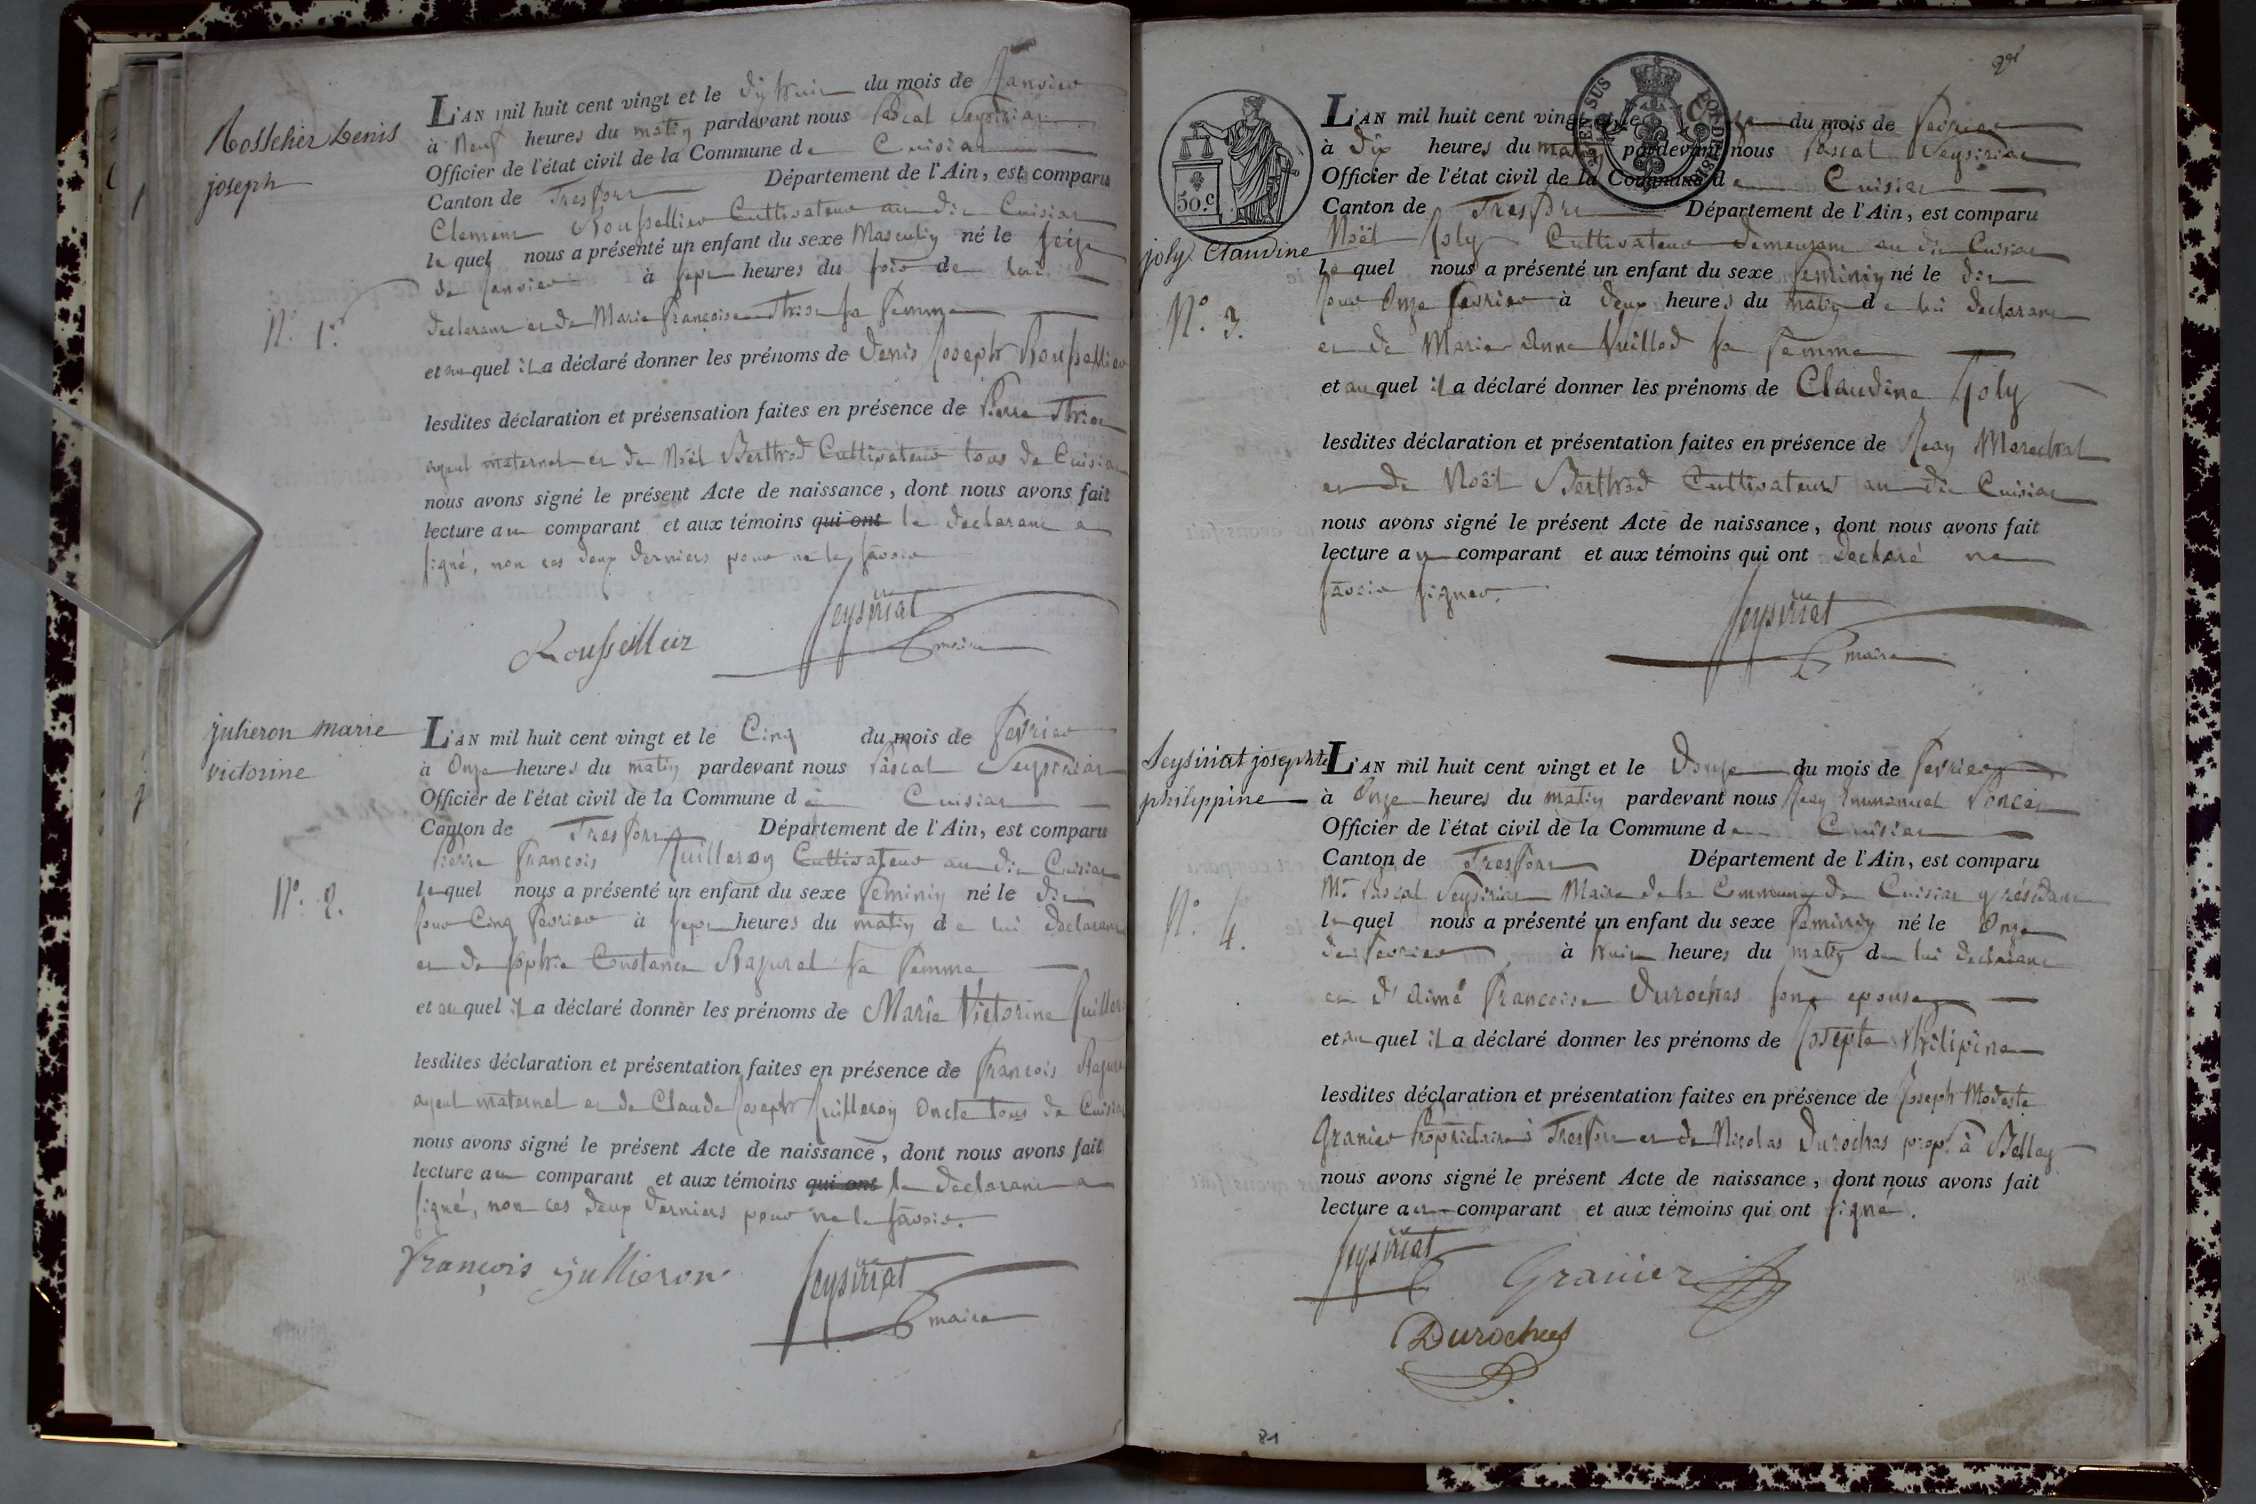 Rosselier Denis
joseph
N.° 1.er
L'AN mil huit cent vingt et le dix huit du mois de Janvier
à Neuf heures du matin pardevant nous Pascal Seysiriat
Officier de l'état civil de la Commune de Cuisiat
Canton de Treffort Département de l'Ain, est comparu
Clement Roussellier Cultivateur au dit Cuisiat
le quel nous a présenté un enfant du sexe Masculin né le seize
de Janvier à sept heures du soir de lui
declarant et de Marie Françoise sa femme
et auquel il a déclaré donner les prénoms de Denis Joseph Rousselier
lesdites déclaration et présensation faites en présence de Pierre
ayeul maternel et de Noël Berthod Cultivateurs tous de Cuisiat
nous avons signé le présent Acte de naissance, dont nous avons fait
lecture au comparant et aux témoins qui ont le declarant a
signé, non ces deux derniers pour ne le savoir
Rousselleir Seysiriat
maire
julieron marie
victorine
N.° 2.
L'AN mil huit cent vingt et le Cinq du mois de fevrier
à Onze heures du matin pardevant nous Pascal Seysiriat
Officier de l'état civil de la Commune de Cuisiat
Canton de Treffort Département de l'Ain, est comparu
Pierre François Juilleron Cultivateur au dit Cuisiat
lequel nous a présenté un enfant du sexe feminin né le dit
jour Cinq fevrier à sept heures du matin de lui declarant
et de Sophie Constance sa femme
et auquel il a déclaré donner les prénoms de Marie Victorine Juilleron
lesdites déclaration et présentation faites en présence de François
ayeul maternel et de Claude Joseph Juilleron Oncle tous de Cuisiat
nous avons signé le présent Acte de naissance, dont nous avons fait
lecture au comparant et aux témoins qui ont le declarant a
signé, non ces deux derniers pour ne le savoir.
François jullieron Seysiriat
maire
50.c
joly Claudine
N.° 3.
L'AN mil huit cent vingt et le Onze du mois de fevrier
à dix heures du matin pardevant nous Pascal Seysiriat
Officier de l'état civil de la Commune de Cuisiat
Canton de Treffort Département de l'Ain, est comparu
Noël Joly Cultivateur demeurant au dit Cuisiat
le quel nous a présenté un enfant du sexe feminin né le dit
jour Onze fevrier à deux heures du matin de lui declarant
et de Marie Anne Vuillod sa femme
et auquel il a déclaré donner les prénoms de Claudine Joly
lesdites déclaration et présentation faites en présence de Jean Marechal
et de Noël Berthod Cultivateurs au dit Cuisiat
nous avons signé le présent Acte de naissance, dont nous avons fait
lecture au comparant et aux témoins qui ont declaré ne
savoir signer.
Seysiriat
maire
Seysiriat josephte
philippine
N.° 4.
L'AN mil huit cent vingt et le Douze du mois de fevrier
à Onze heures du matin pardevant nous Jean Emmanuel Poncet
Officier de l'état civil de la Commune de Cuisiat
Canton de Treffort Département de l'Ain, est comparu
Mr. Pascal Seysiriat Maire de la Commune de Cuisiat y résidant
le quel nous a présenté un enfant du sexe feminin né le Onze
de fevrier à huit heures du matin de lui declarant
et d'aimé Françoise Durochas son epouse
et auquel il a déclaré donner les prénoms de Josepte Philipine
lesdites déclaration et présentation faites en présence de Joseph Modeste
Granier Propriétaire à Treffort et de Nicolas Durochas prop.e à Belley
nous avons signé le présent Acte de naissance, dont nous avons fait
lecture au comparant et aux témoins qui ont signé.
Seysiriat Granier
Durochas
81